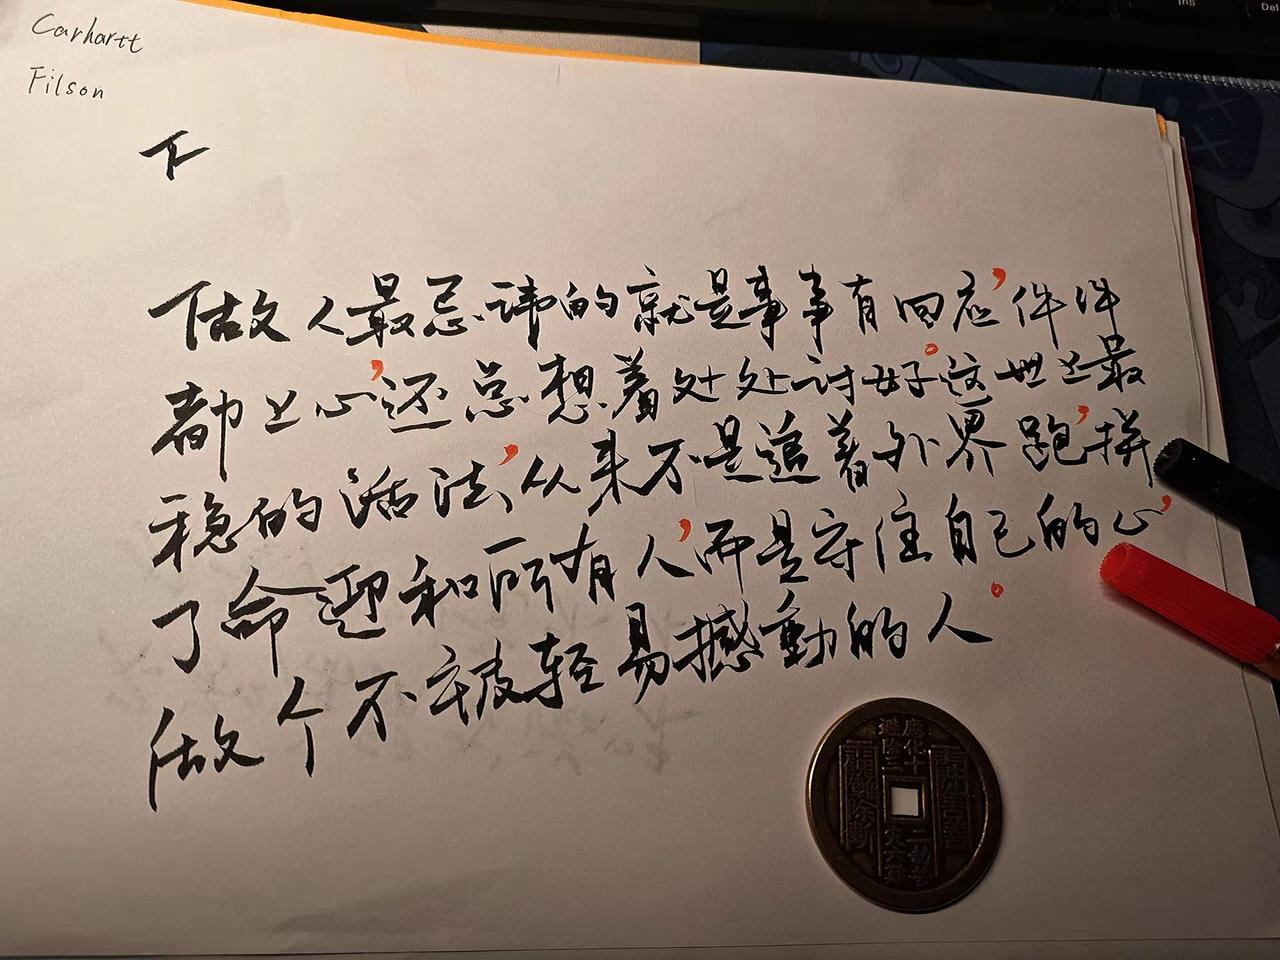 Carhartt
Filson
下
做人最忌讳的就是事事有回应，件件
都上心，还总想着处处讨好。这世上最
稳的活法，从来不是追着外界跑，拼
了命迎和所有人，而是守住自己的心，
做个不被轻易撼動的人。
Ins
Del